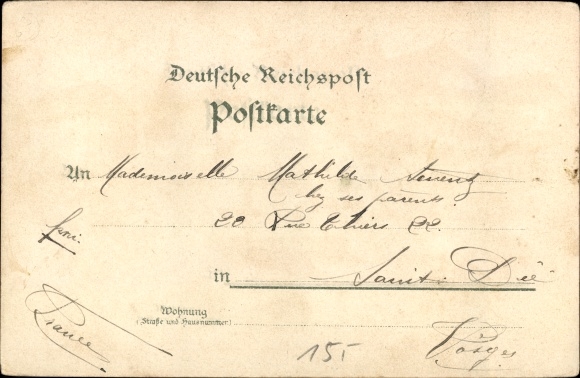 Deutsche Reichspost
Postkarte
An Mademoiselle Mathilde
chez ses parents.
20 Rue Thiers 22.
in Saint-Dié
Wohnung
(Straße und Hausnummer)
France
Vosges
15,-